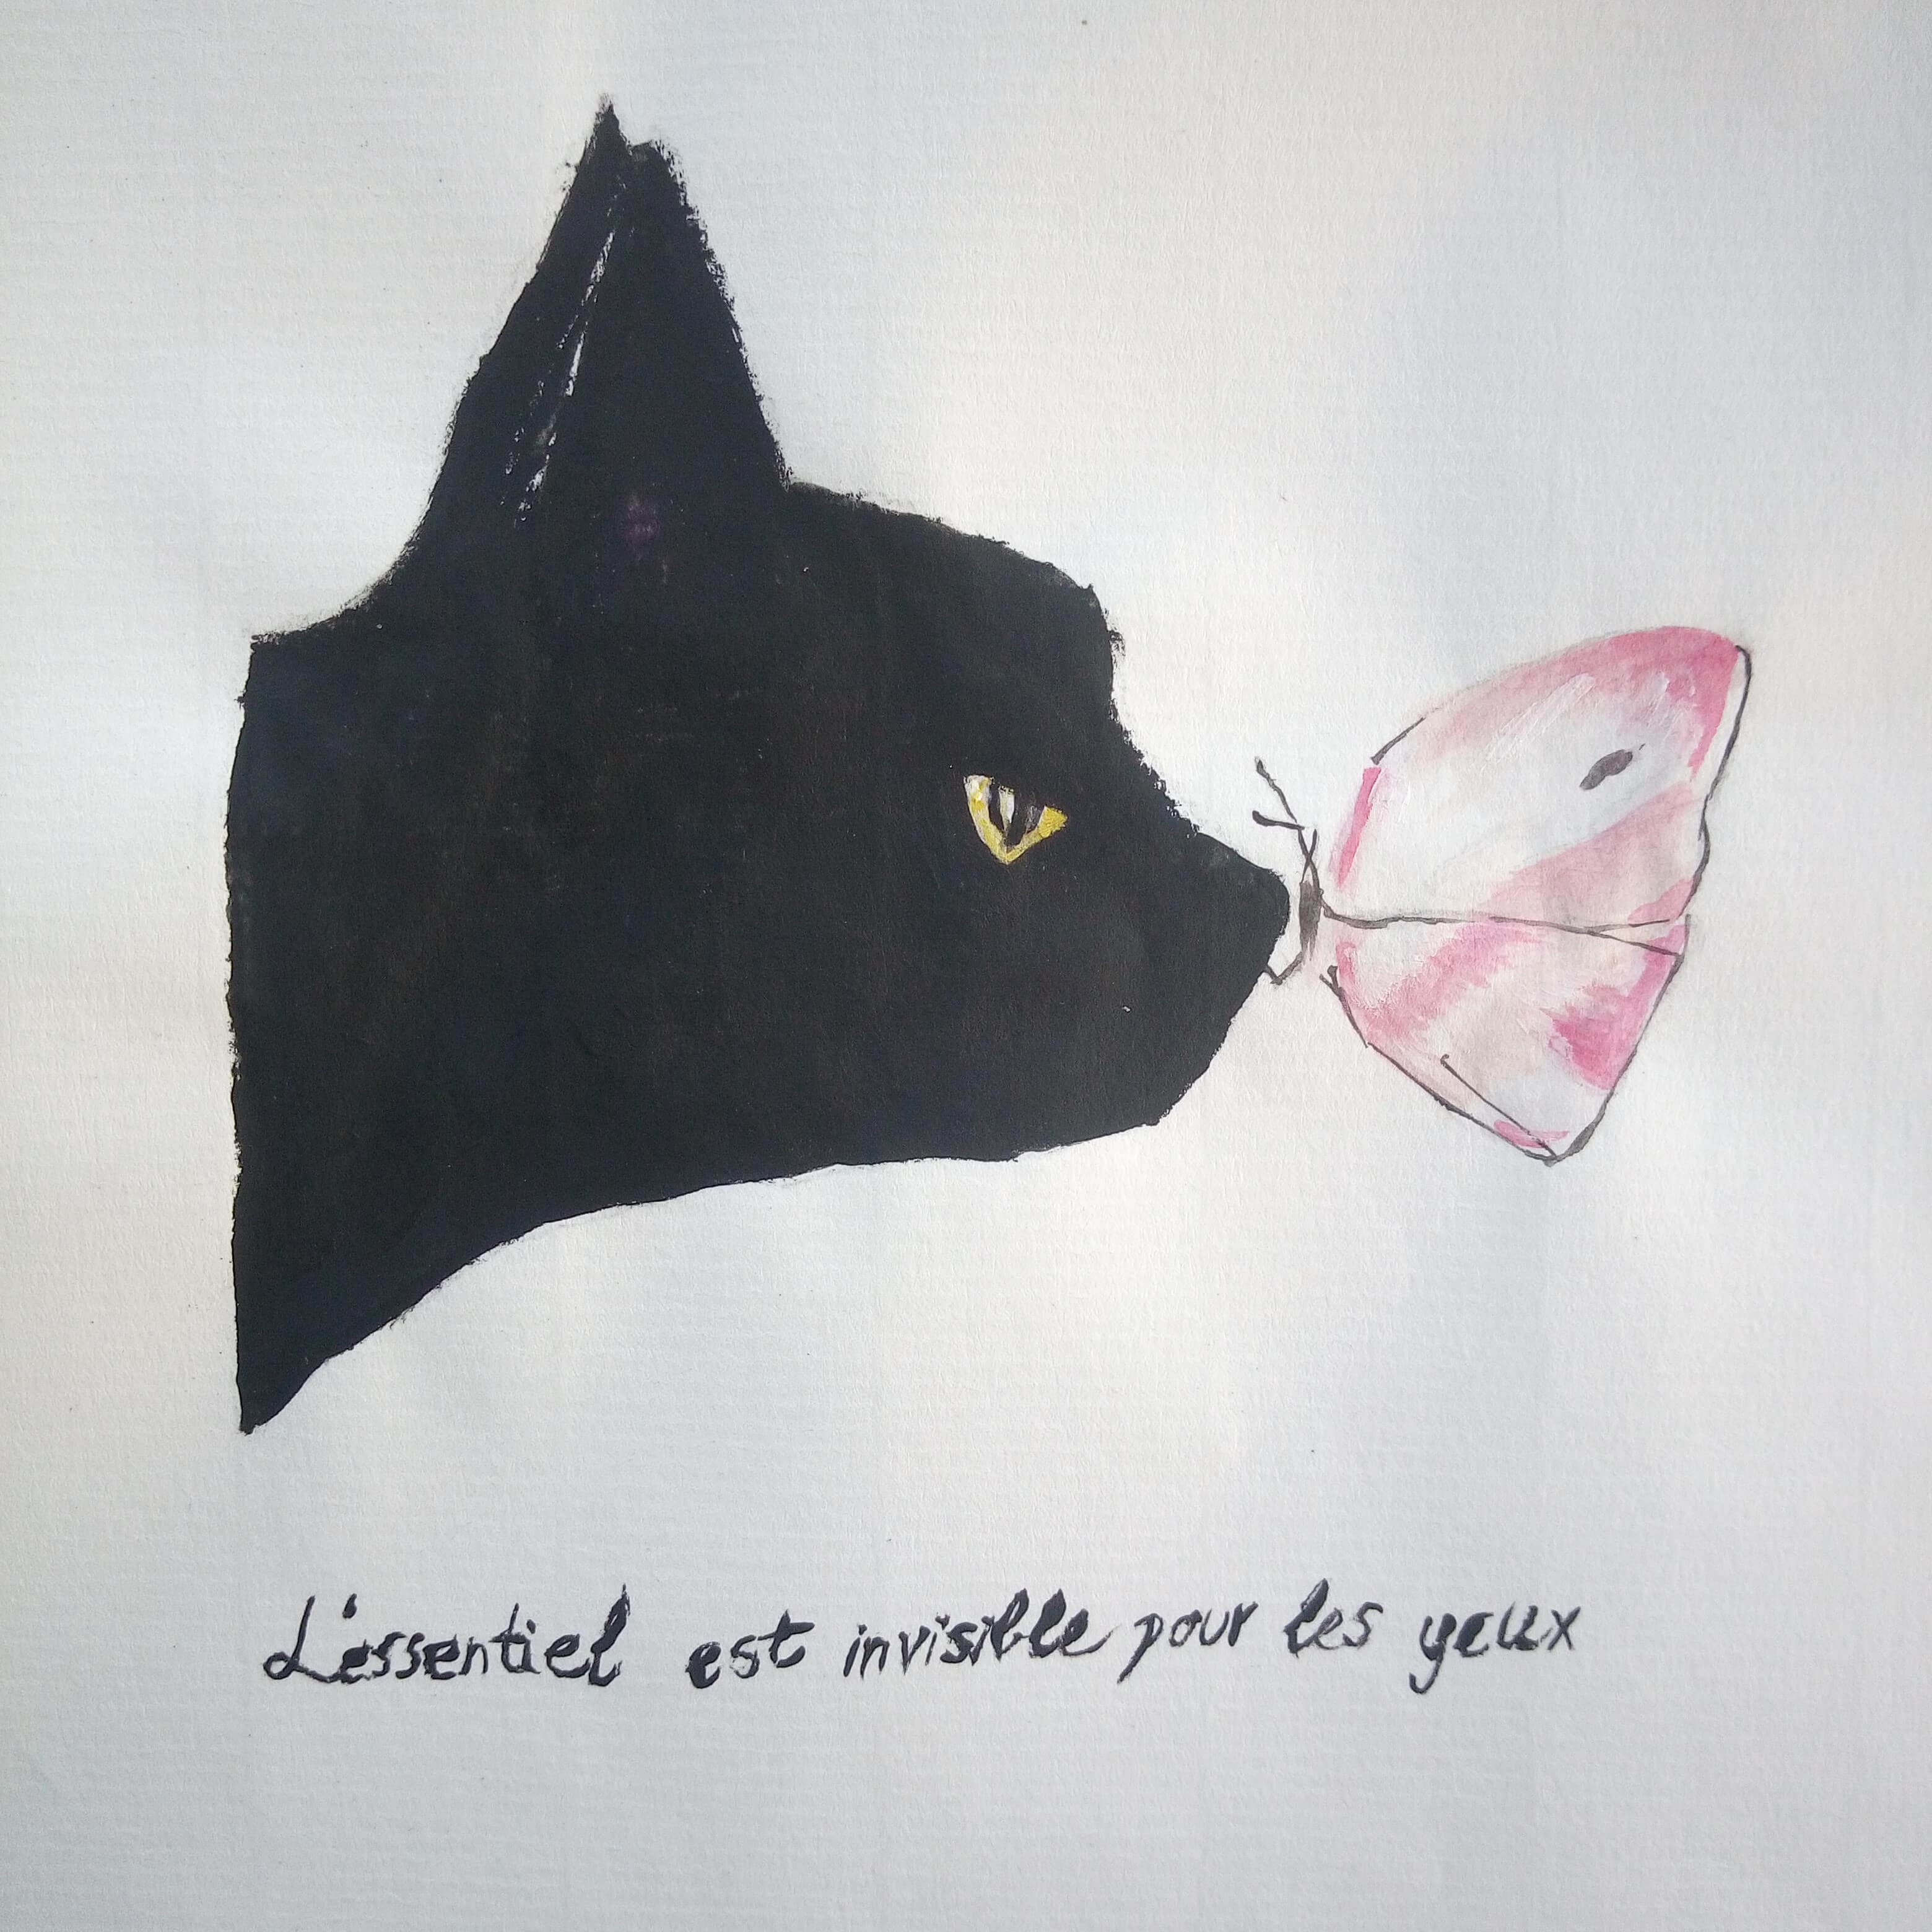 L'essentiel est invisible pour les yeux